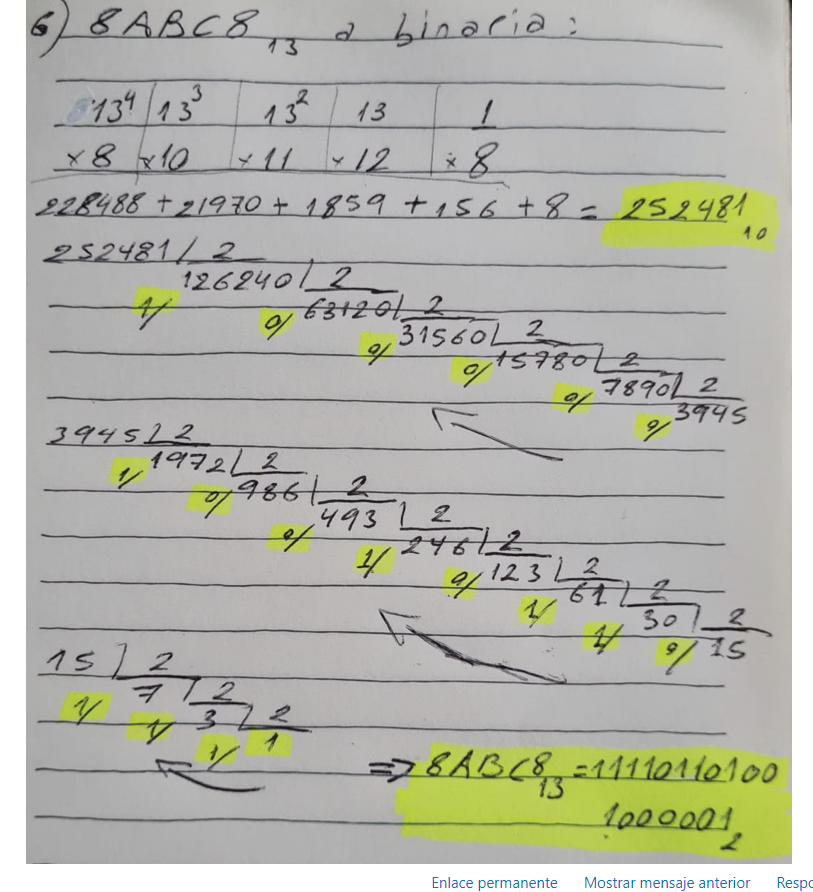 6) 8ABC8₁₃ a binaria:
13⁴ 13³ 13² 13 1
×8 ×10 ×11 ×12 ×8
228488 + 21970 + 1859 + 156 + 8 = 252481₁₀
252481 2
126240 2
1 0 63120 2
0 31560 2
0 15780 2
0 7890 2
0 3945
3945 2
1 1972 2
0 986 2
0 493 2
1 246 2
0 123 2
1 61 2
1 30 2
0 15
15 2
1 7 2
1 3 2
1 1
⇒ 8ABC8₁₃ = 11110110100
1000001₂
Enlace permanente Mostrar mensaje anterior Respo